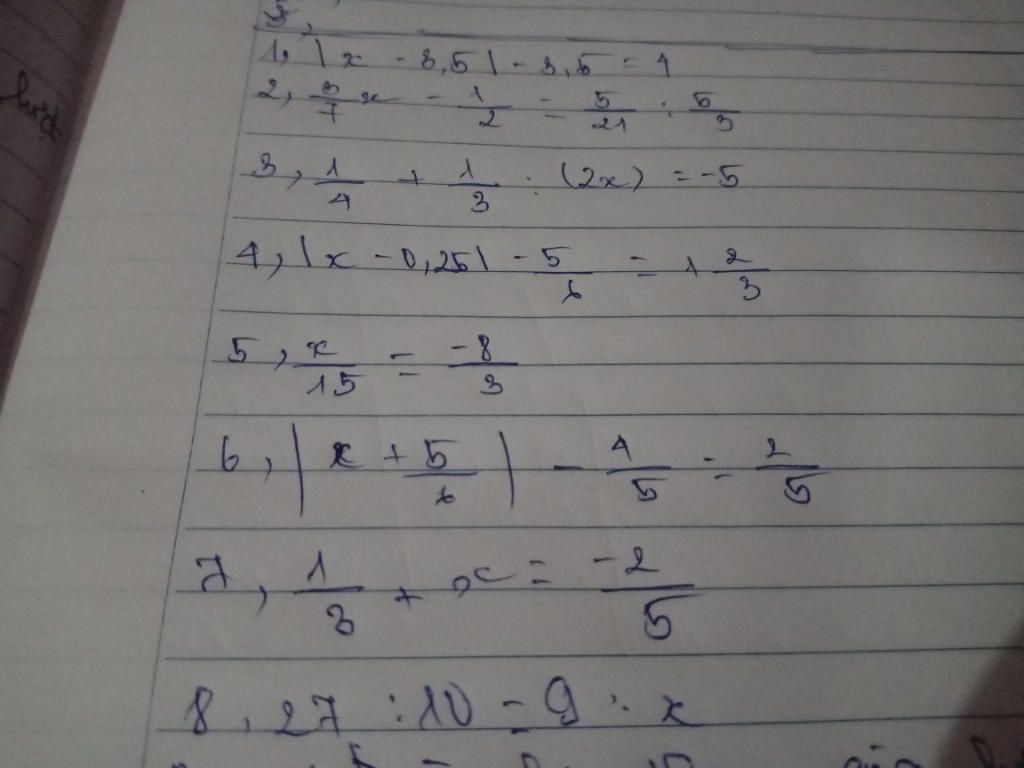 1, |x - 3,5| - 3,5 = 1
2, 3/7 x - 1/2 = 5/21 : 5/3
3, 1/4 + 1/3 : (2x) = -5
4, |x - 0,25| - 5/6 = 1 2/3
5, x/15 = -8/3
6, |x + 5/6| - 4/5 = 2/5
7, 1/3 + x = -2/5
8, 27 : 10 = 9 : x